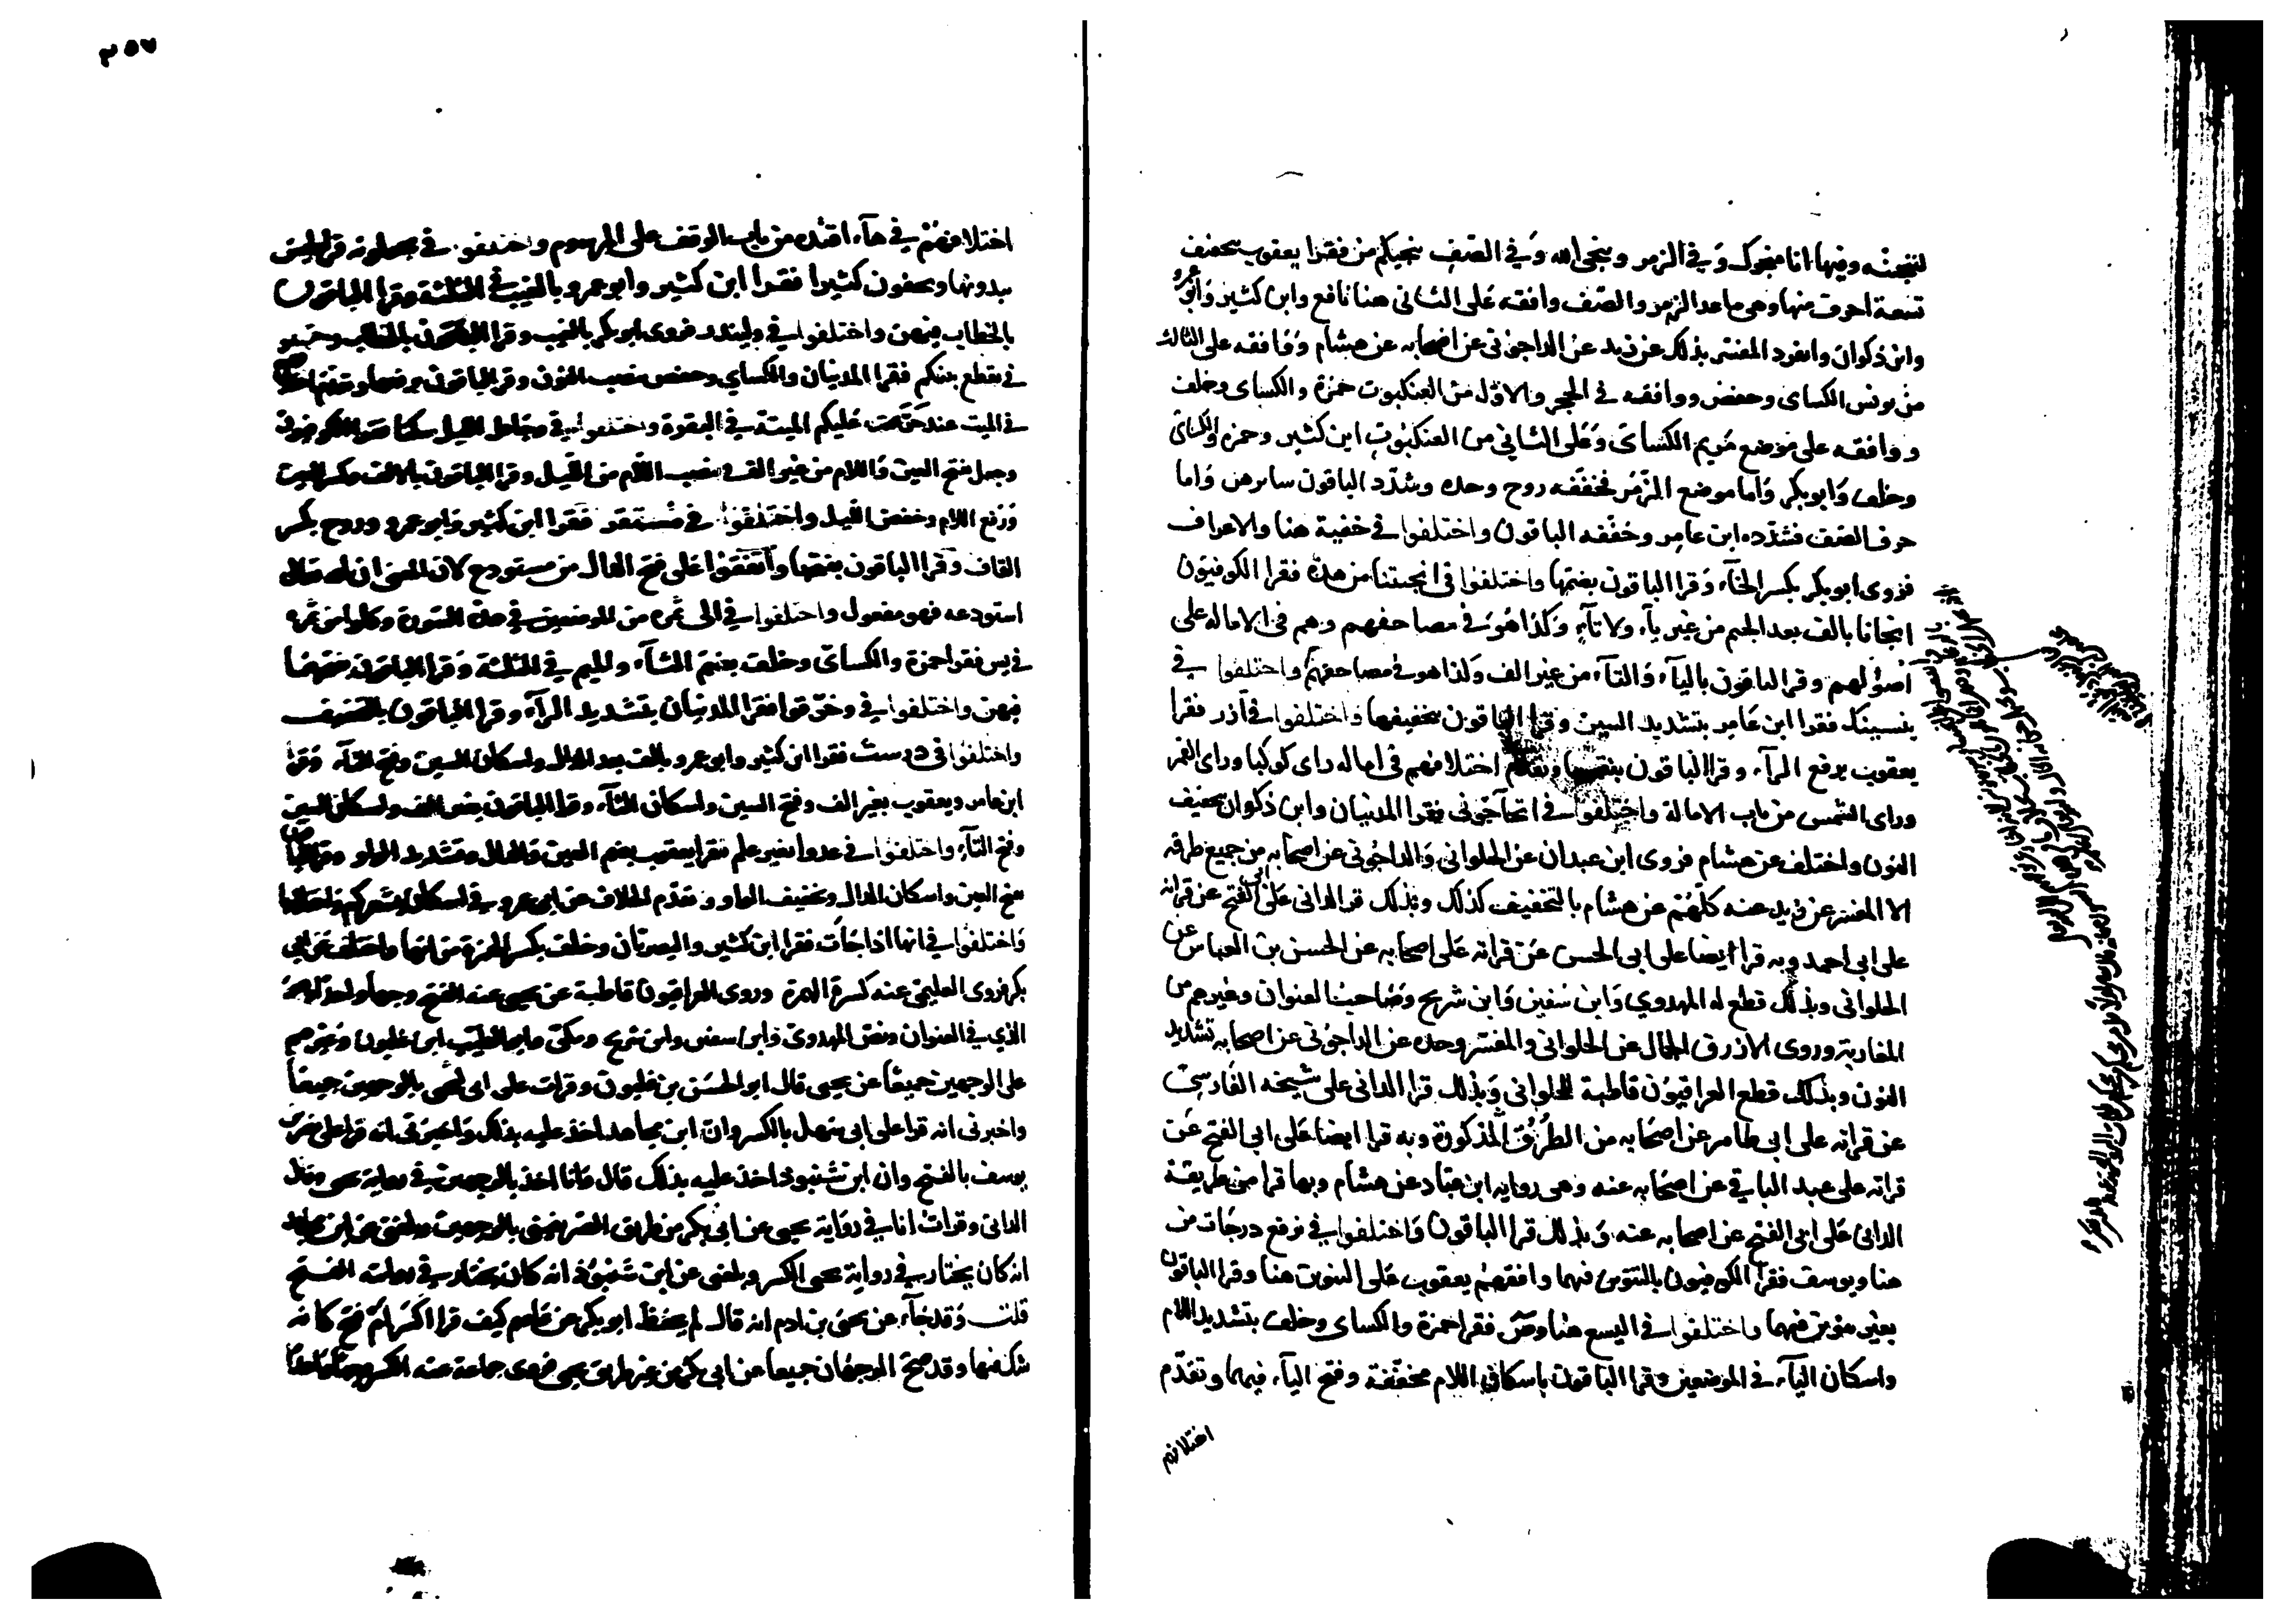 لننجينه وفيها انا منجوك وَفي الزمر وينجى الله وَفي الصّف تنجيكم من فقرا يعقوب بتخفيف
تسعة احرف منها وهى ما عدا الزمر والصّف وافقه عَلى الثانى هنا نافع وابن كثير وَابو عمرو
وابن ذكوان وانفرد المفسّر بذلك عن زيد عن الداجونى عن اصحابه عن هشام وَوَافقه على الثالث
من يونس الكساى وحفص ووافقه في الحجر والاوّل من العنكبوت حمزة والكساى وخلف
ووافقه على موضع مَريم الكساىَ وَعَلى الثانى من العنكبُوت ابن كثير وحمزه والكساىَ
وخلف وَابوبكر وَاما موضع الزّمَر فخففه روح وحده وشدّد الباقون سايرهن وَاما
حرف الصّف فشدّده ابن عامر وخفّفه الباقون واختلفوا في خفية هنا والاعراف
فرَوى ابوبكر بكسر الخآء وَقرا الباقون بضمّها واختلفوا فى انجيتنا من هذه فقرا الكوفيّون
انجانا بالف بعد الجيم من غير يآء ولا تآءٍ وَكذا هُوَ في مصاحفهم وهم فى الاماله على
اصُولهم وقرا الباقون باليآء وَالتآء من غير الف وَكذا هو في مصاحفهم واختلفوا في
ينسينك فقرا ابن عَامر بتشديد السين وقرا الباقون بتخفيفها واختلفوا في آزر فقرا
يعقوب برفع الرآء وقرا الباقون بنصبها وتقدّم اختلافهم فى اماله راى كوكبا وراى القمر
وراى الشمس من باب الامالة واختلفوا في اتحآجونى فقرا المدنيان وابن ذكوان بتخفيف
النون واختلف عن هشام فروى ابن عبدان عن الحلوانى وَالداجُونى عن اصحابه من جميع طرقه
الا المفسّر عن زيد عنه كلّهُمْ عن هشام بالتخفيف كذلك وبذلك قرا الدانى عَلى ابى الفتح عن قراته
على ابى احمد وبه قرا ايضا على ابى الحسن عَن قراته عَلى اصحابه عن الحسن بن العباس عن
الحلوانى وبذلك قطع له المهدوي وَابن سُفين وَابن شريح وصَاحب العنوان وغيرهم من
المغاربة وروى الازرق الجمال عن الحلوانى والمفسّر وحده عن الداجُونى عن اصحابه تشديد
النون وبذلك قطع العراقيُون قاطبة للحلوانى وَبذلك قرا الدانى على شيخه الفَارسِىّ
عن قراته على ابى طاهر عن اصحَابه من الطُرُق المذكورة وبه قرا ايضا عَلى ابى الفتح عَن
قراته على عبد الباقي عن اصحَابه عنه وهى روايه ابن عبّاد عن هشام وبها قرا من طريقة
الدانى عَلى ابى الفتح عن اصحابه عنه وَبذلك قرا الباقون وَاختلفوا في نرفع درجَات من
هنا ويوسف فقرا الكوفيون بالتنوين فيهما وافقهمْ يعقوب عَلى التنوين هنا وقرا الباقون
بغير تنوين فيهما واختلفوا في اليسع هنا وصَ فقرا حمزة والكساى وخلف بتشديد اللام
واسكان اليآء في الموضعين وقرا الباقون باسكان اللام مخفّفة وفتح اليآء فيهما وتقدّم
اختلافهم
٢٥٧
اختلافهُمْ في هآء اقتده من باب الوقف على المرسوم واختلفوا في تجعلونه قراطيس
تبدونها وتخفون كثيرا فقرا ابن كثير وابوعمرو بالغيب في الثلثة وقرا الباقون
بالخطاب فيهن واختلفوا في ولينذر فروى ابوبكر بالغيب وقرا الباقون بالخطاب واختلفوا
في تقطع بينكم فقرا المدنيان والكساي وحفص بنصب النون وقرا الباقون برفعها وتقدّم اختلافهم
في الميت عند حرّمت عَليكم الميتة في البقرة واختلفوا في وجاعل الليل سكنا فقرا الكوفيون
وجعل بفتح العين وَاللام من غير الف وبنصب اللام من الليل وقرا الباقون بالالف وكسر العين
وَرَفع اللام وخفض الليل واختلفوا في فمُستقر فقرا ابن كثير وَابوعمرو وروح بكسر
القاف وقرا الباقون بفتحها واتفقوا عَلى فتح الدال من مستودع لان المعنى ان الله تعالى
استودعه فهو مفعول واختلفوا في الى ثمره من الموضعين في هذه السّورة وكلوا من ثمره
في يس فقرا حمزة والكساىّ وخلف بضم الثآء والميم في الثلثة وَقرا الباقون بفتحهما
فيهن واختلفوا في وخرّقوا فقرا المدنيان بتشديد الرآء وقرا الباقون بالتخفيف
واختلفوا فى درست فقرا ابن كثير وابوعمرو بالف بعد الدال واسكان السين وفتح التآء وَقرا
ابن عامر ويعقوب بغير الف وفتح السين واسكان التآء وقرا الباقون بغير الف واسكان السين
وفتح التآءِ واختلفوا في عدوا بغير علم فقرا يعقوب بضم العين والدال وتشديد الواو وقرا الباقون
بفتح العين واسكان الدال وتخفيف الواو وتقدّم الخلاف عن ابى عمرو في اسكان يشعركم واختلاسها
وَاختلفوا في انها اذا جَآت فقرا ابن كثير والبصريان وخلف بكسر الهمزة من انها واختلف عن ابى
بكر فروى العليمى عنه كسر الهمزة وروى العراقيون قاطبة عن يحيى عنه الفتح وجها واحدًا وهو
الذي في العنوان ونصّ المهدوى وَابن سفين وابن شريح ومكى وابو الطيّب ابن غلبون وغيرهم
على الوجهين جميعًا عن يحيى قال ابو الحسَن بن غلبون وقرات على ابى بالوجهين جميعًا
واخبرنى انه قرا على ابى سهل بالكسر وان ابن مجاهد اخذ عليه بذلك وَاخبرَنى انه قرا على نصر بن
يوسف بالفتح وان ابن شنبوذ اخذ عليه بذلك قال وانا اخذ بالوجهين في رواية يحيى وقال
الدانى وقرات انا في رواية يحيى عن ابى بكر من طريق الصّريفينى بالوجهين وبلغنى عن ابن مجاهد
انه كان يختار في رواية يحيى الكسر وبلغنى عن ابن شنبُوذ انه كان يختار في روايته الفتح
قلت وَقد جَآء عن يحيَى بن ادم انه قال لم يحفظ ابوبكر عن عاصم كيف قرا اكسَر ام فتح كانه
شك فيها وقد صَحّ الوجهان جميعا عن ابى بكر من غير طريق يحيى فروى جماعة عنه الكسر وجهًا واحدًا